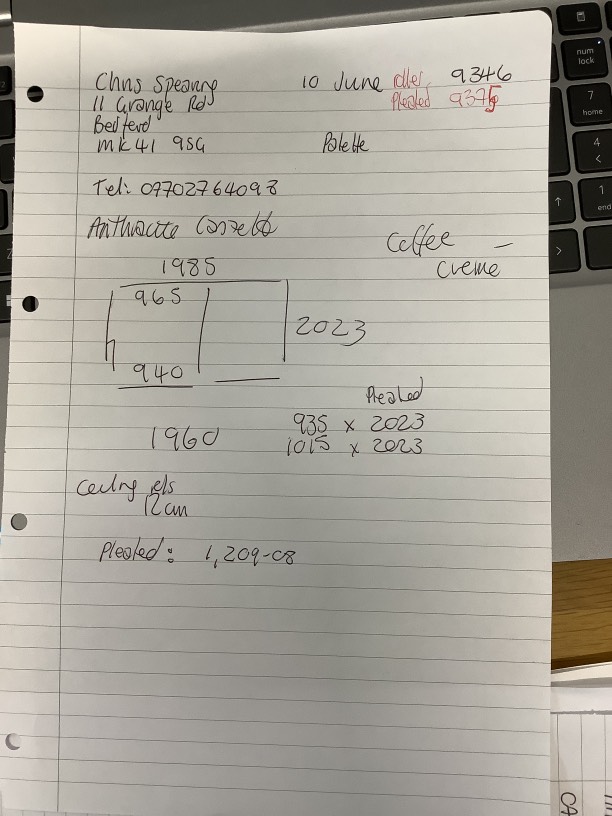 Chris Spearing 10 June roller 9346
11 Grange Rd Pleated 9375
Bedford
MK41 9SG Palette
Tel: 07702764098
Anthracite Cassette
Coffee -
Creme
1985
965
2023
940
Pleated
935 x 2023
1960
1015 x 2023
Ceiling
12cm
Pleated: 1,209-08
num
lock
7
home
4
1
end
CA